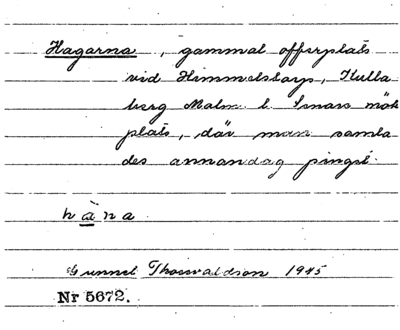 Hagarna, gammal offerplats
vid Himmelstorp, Kulla
berg Malm. l. Senare möt
plats, där man samla
des annandag pingst.
hàna
Gunnel Thorvaldson 1945
Nr 5672.